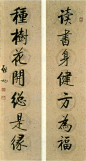 读书身健方为福
種樹花開總是緣
啟功